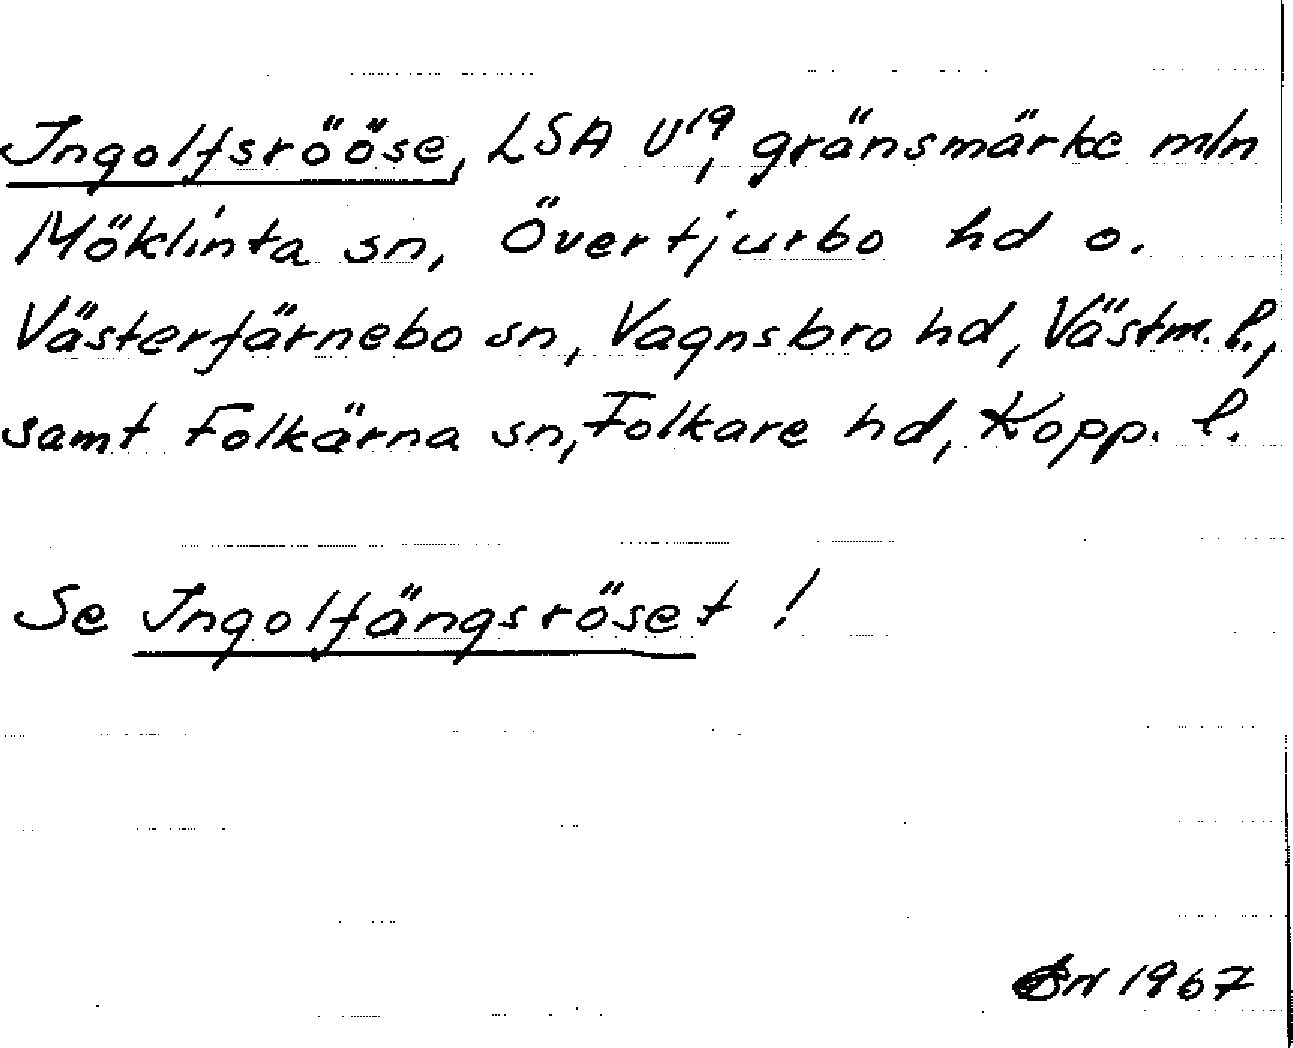 Ingolfsrööse, LSA U¹⁹, gränsmärke mln
Möklinta sn, Övertjurbo hd o.
Västerfärnebo sn, Vagnsbro hd, Västm. l.,
samt Folkärna sn, Folkare hd, Kopp. l.
Se Ingolfängsröset !
1967